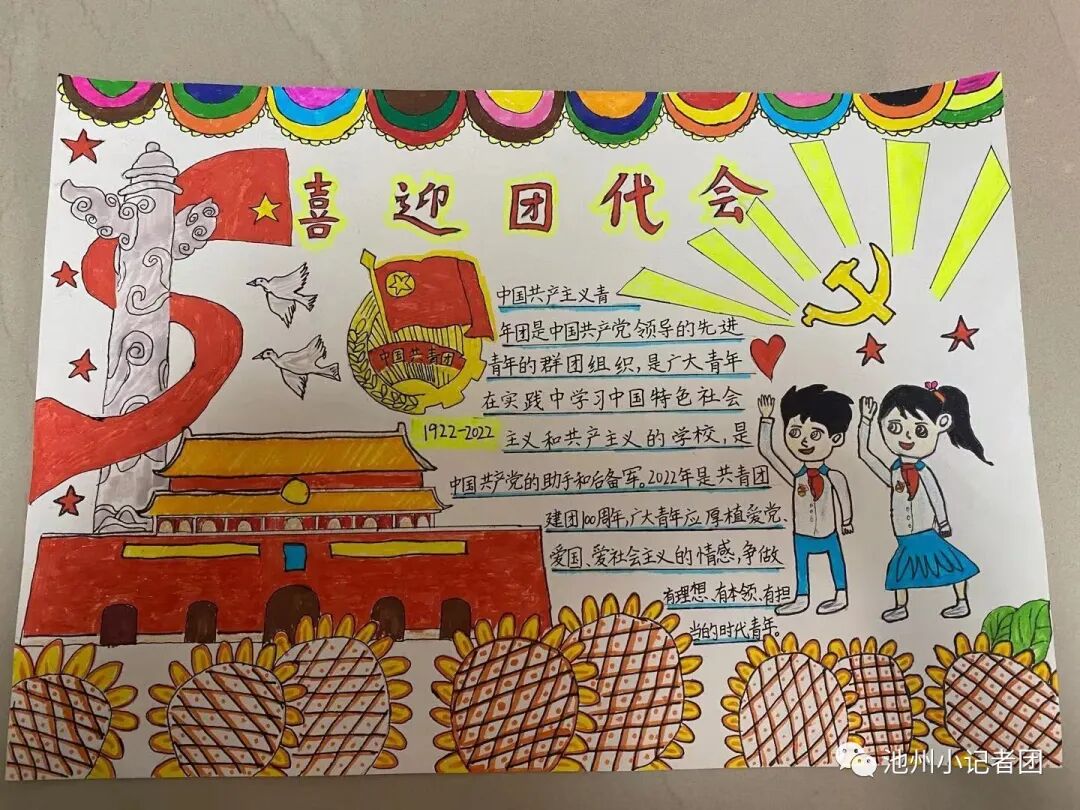 喜迎团代会
中国共青团
1922-2022
中国共产主义青
年团是中国共产党领导的先进
青年的群团组织,是广大青年
在实践中学习中国特色社会
主义和共产主义的学校,是
中国共产党的助手和后备军。2022年是共青团
建团100周年,广大青年应厚植爱党、
爱国、爱社会主义的情感,争做
有理想、有本领、有担
当的时代青年。
池州小记者团